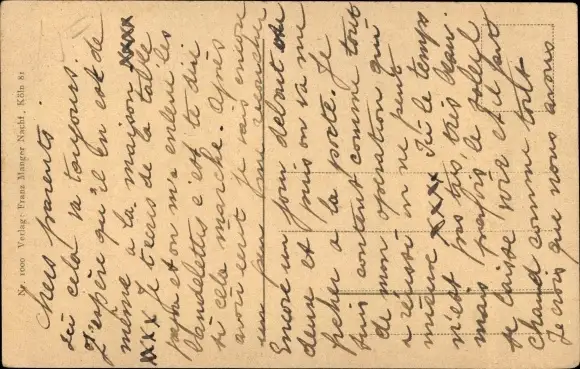 Chers parents.
Ici cela va toujours.
J'espère qu'il en est de
même à la maison
xxx Je viens de la table
et on m'a enlevé les
bandelettes c'est te dire
si cela marche. Après
avoir je vais encore
un peu me
Encore un jour debout ou
deux et puis on va me
à la porte. Je
suis content comme tout
de mon opération qui
a réussi on ne peut
mieux xxxx Ici le temps
n'est pas très, très beau.
mais parfois le soleil
se laisse voir et il fait
chaud comme tout
Je crois que nous avons
Nr. 1000 Verlag: Franz Manger Nachf., Köln 81